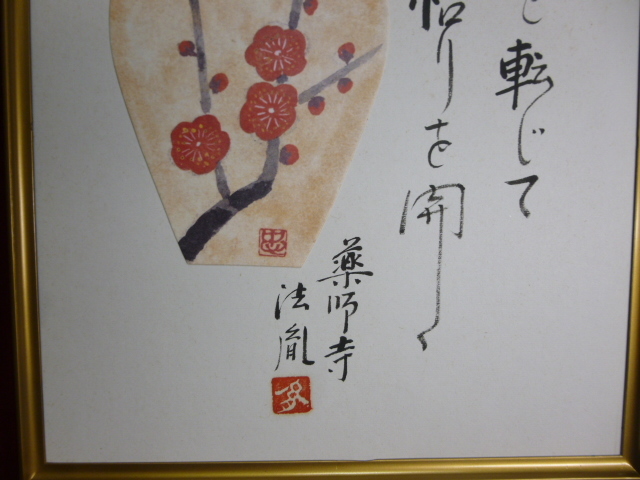 と転じて
悟りを開く
薬師寺
法胤